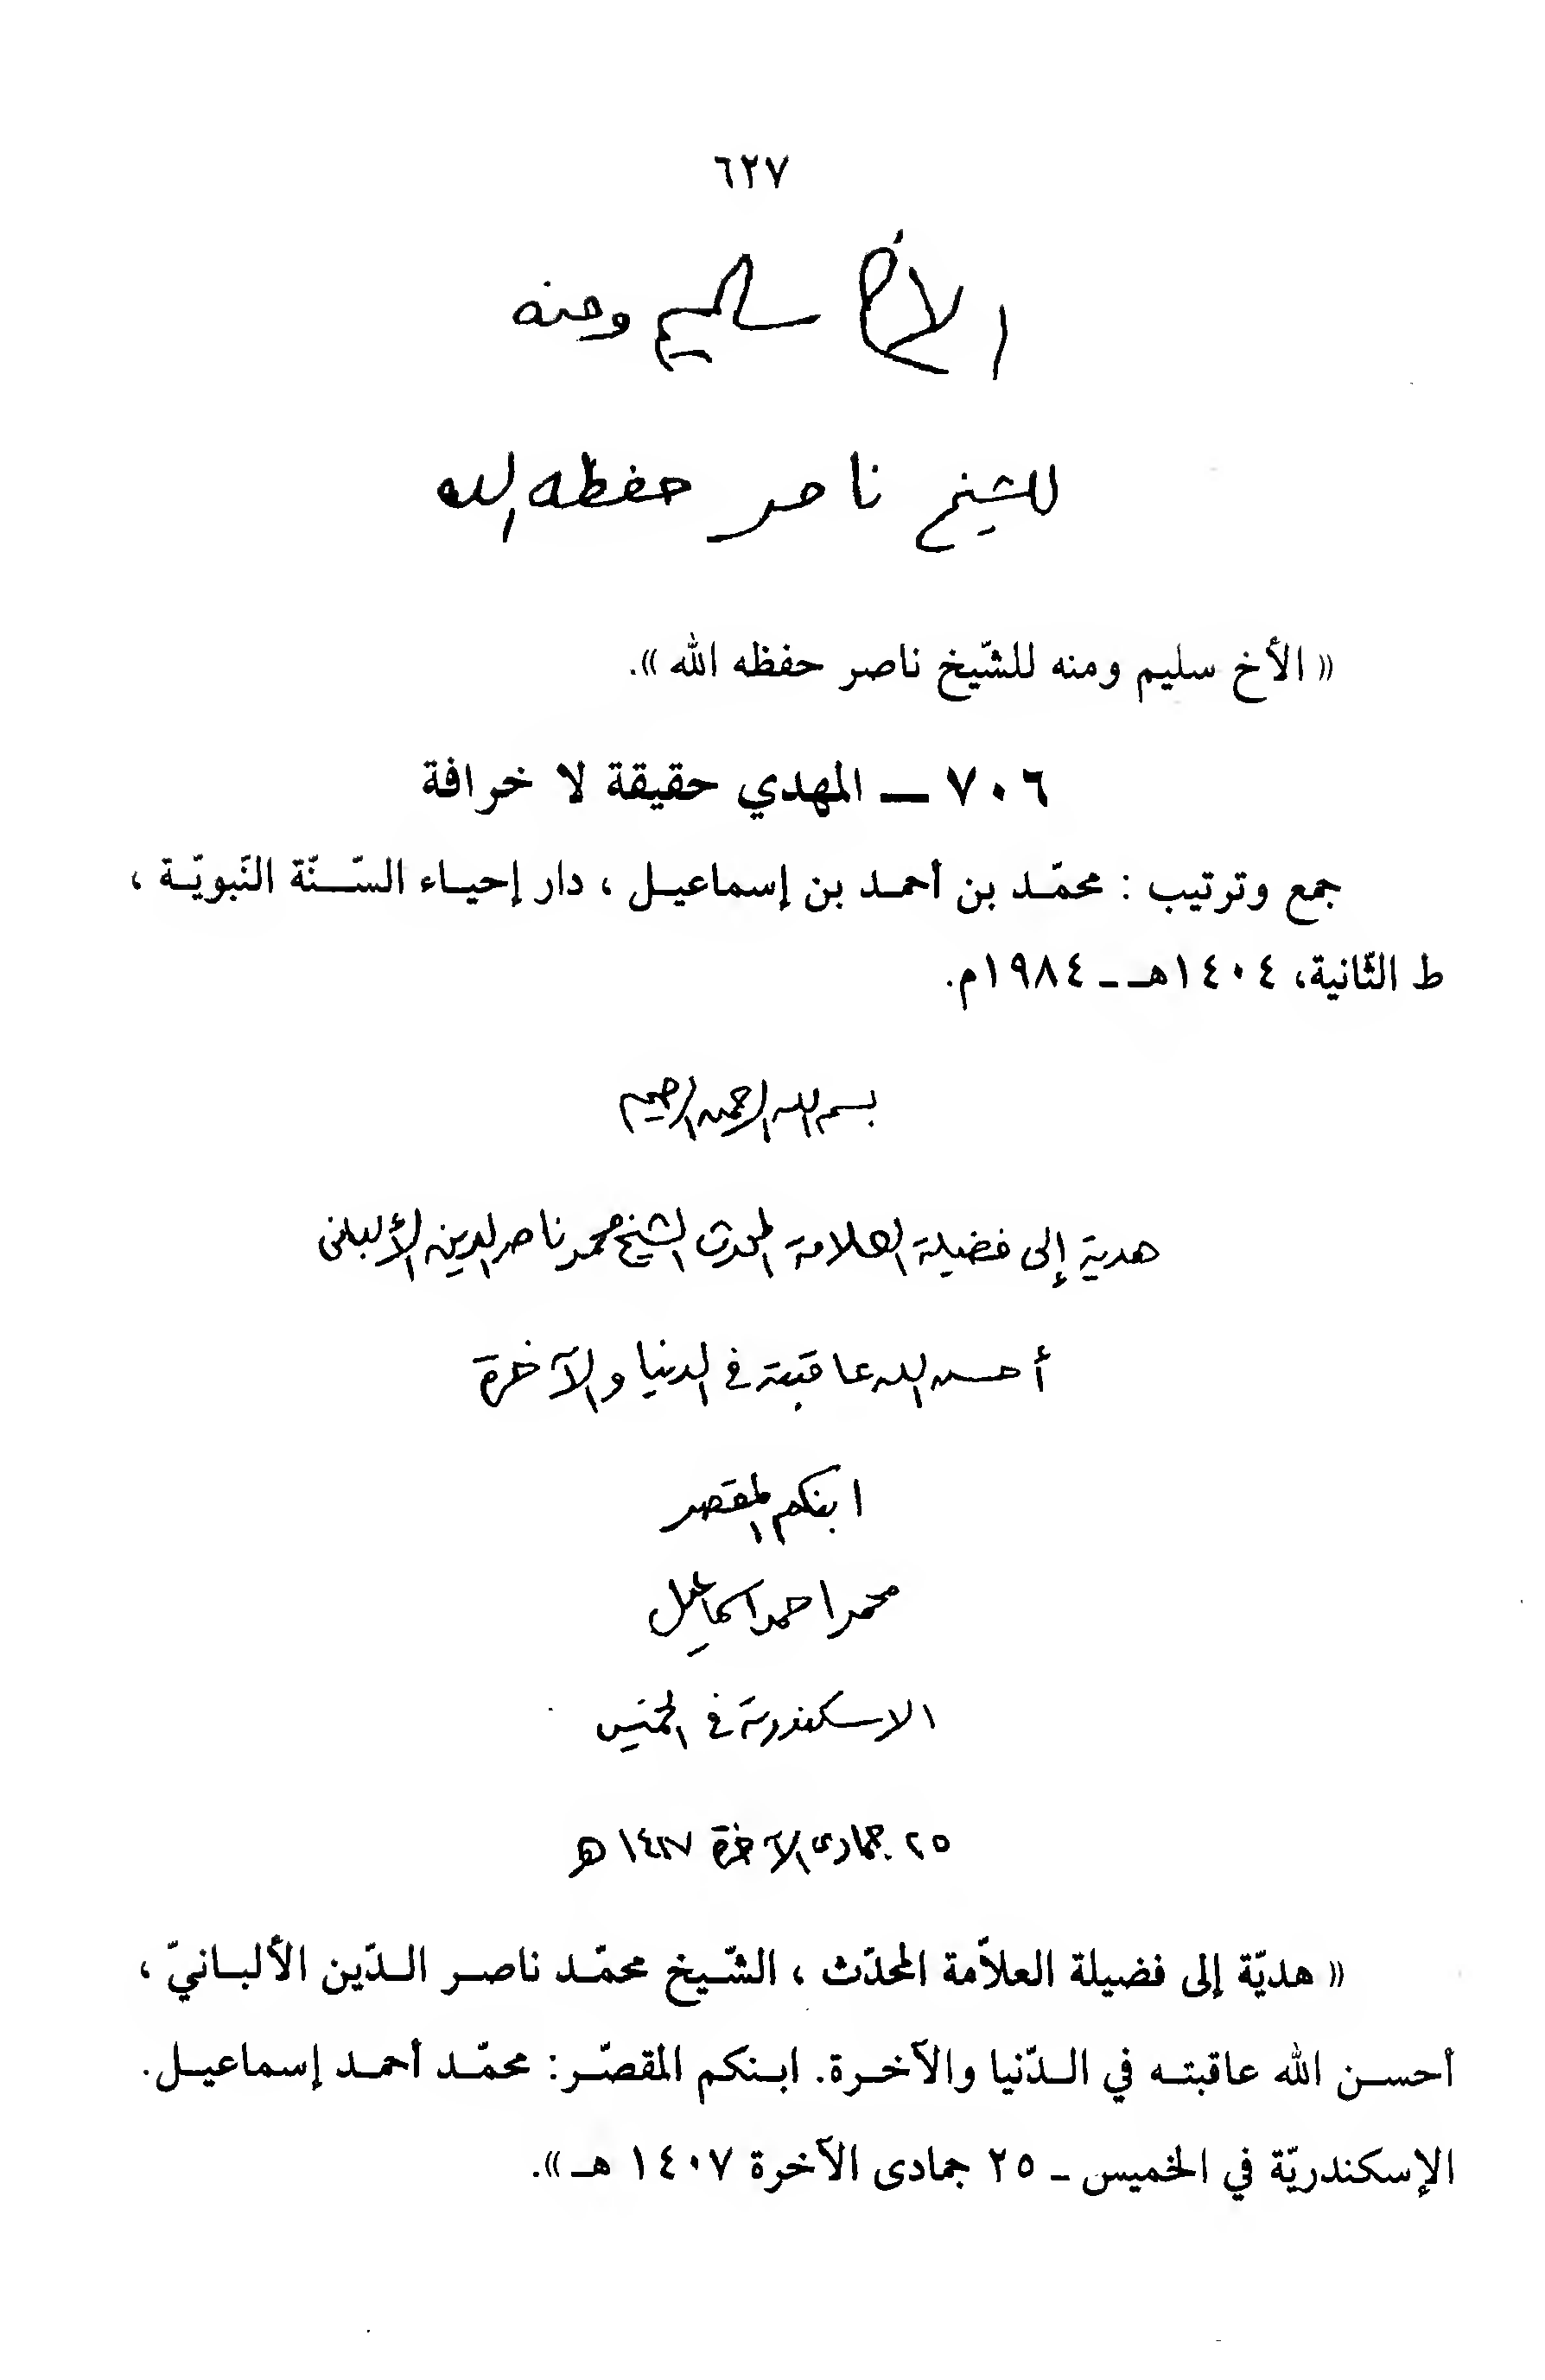 ٦٢٧
الأخ سليم ومنه
للشيخ ناصر حفظه الله
« الأخ سليم ومنه للشّيخ ناصر حفظه الله ».
٧٠٦ ـ المهدي حقيقة لا خرافة
جمع وترتيب : محمّد بن أحمد بن إسماعيل ، دار إحياء السّنّة النّبويّة ،
ط الثّانية، ١٤٠٤هـ ـ ١٩٨٤م.
بسم الله الرحمن الرحيم
هدية إلى فضيلة العلامة المحدث الشيخ محمد ناصر الدين الألبانى
أحسن الله عاقبته في الدنيا والآخرة
ابنكم المقصر
محمد احمد اسماعيل
الاسكندرية في الخميس
٢٥ جمادى الآخرة ١٤٠٧ هـ
« هديّة إلى فضيلة العلاّمة المحدّث ، الشّيخ محمّد ناصر الدّين الألبانيّ ،
أحسن الله عاقبته في الدّنيا والآخرة. ابنكم المقصّر: محمّد أحمد إسماعيل.
الإسكندريّة في الخميس ـ ٢٥ جمادى الآخرة ١٤٠٧ هـ ».